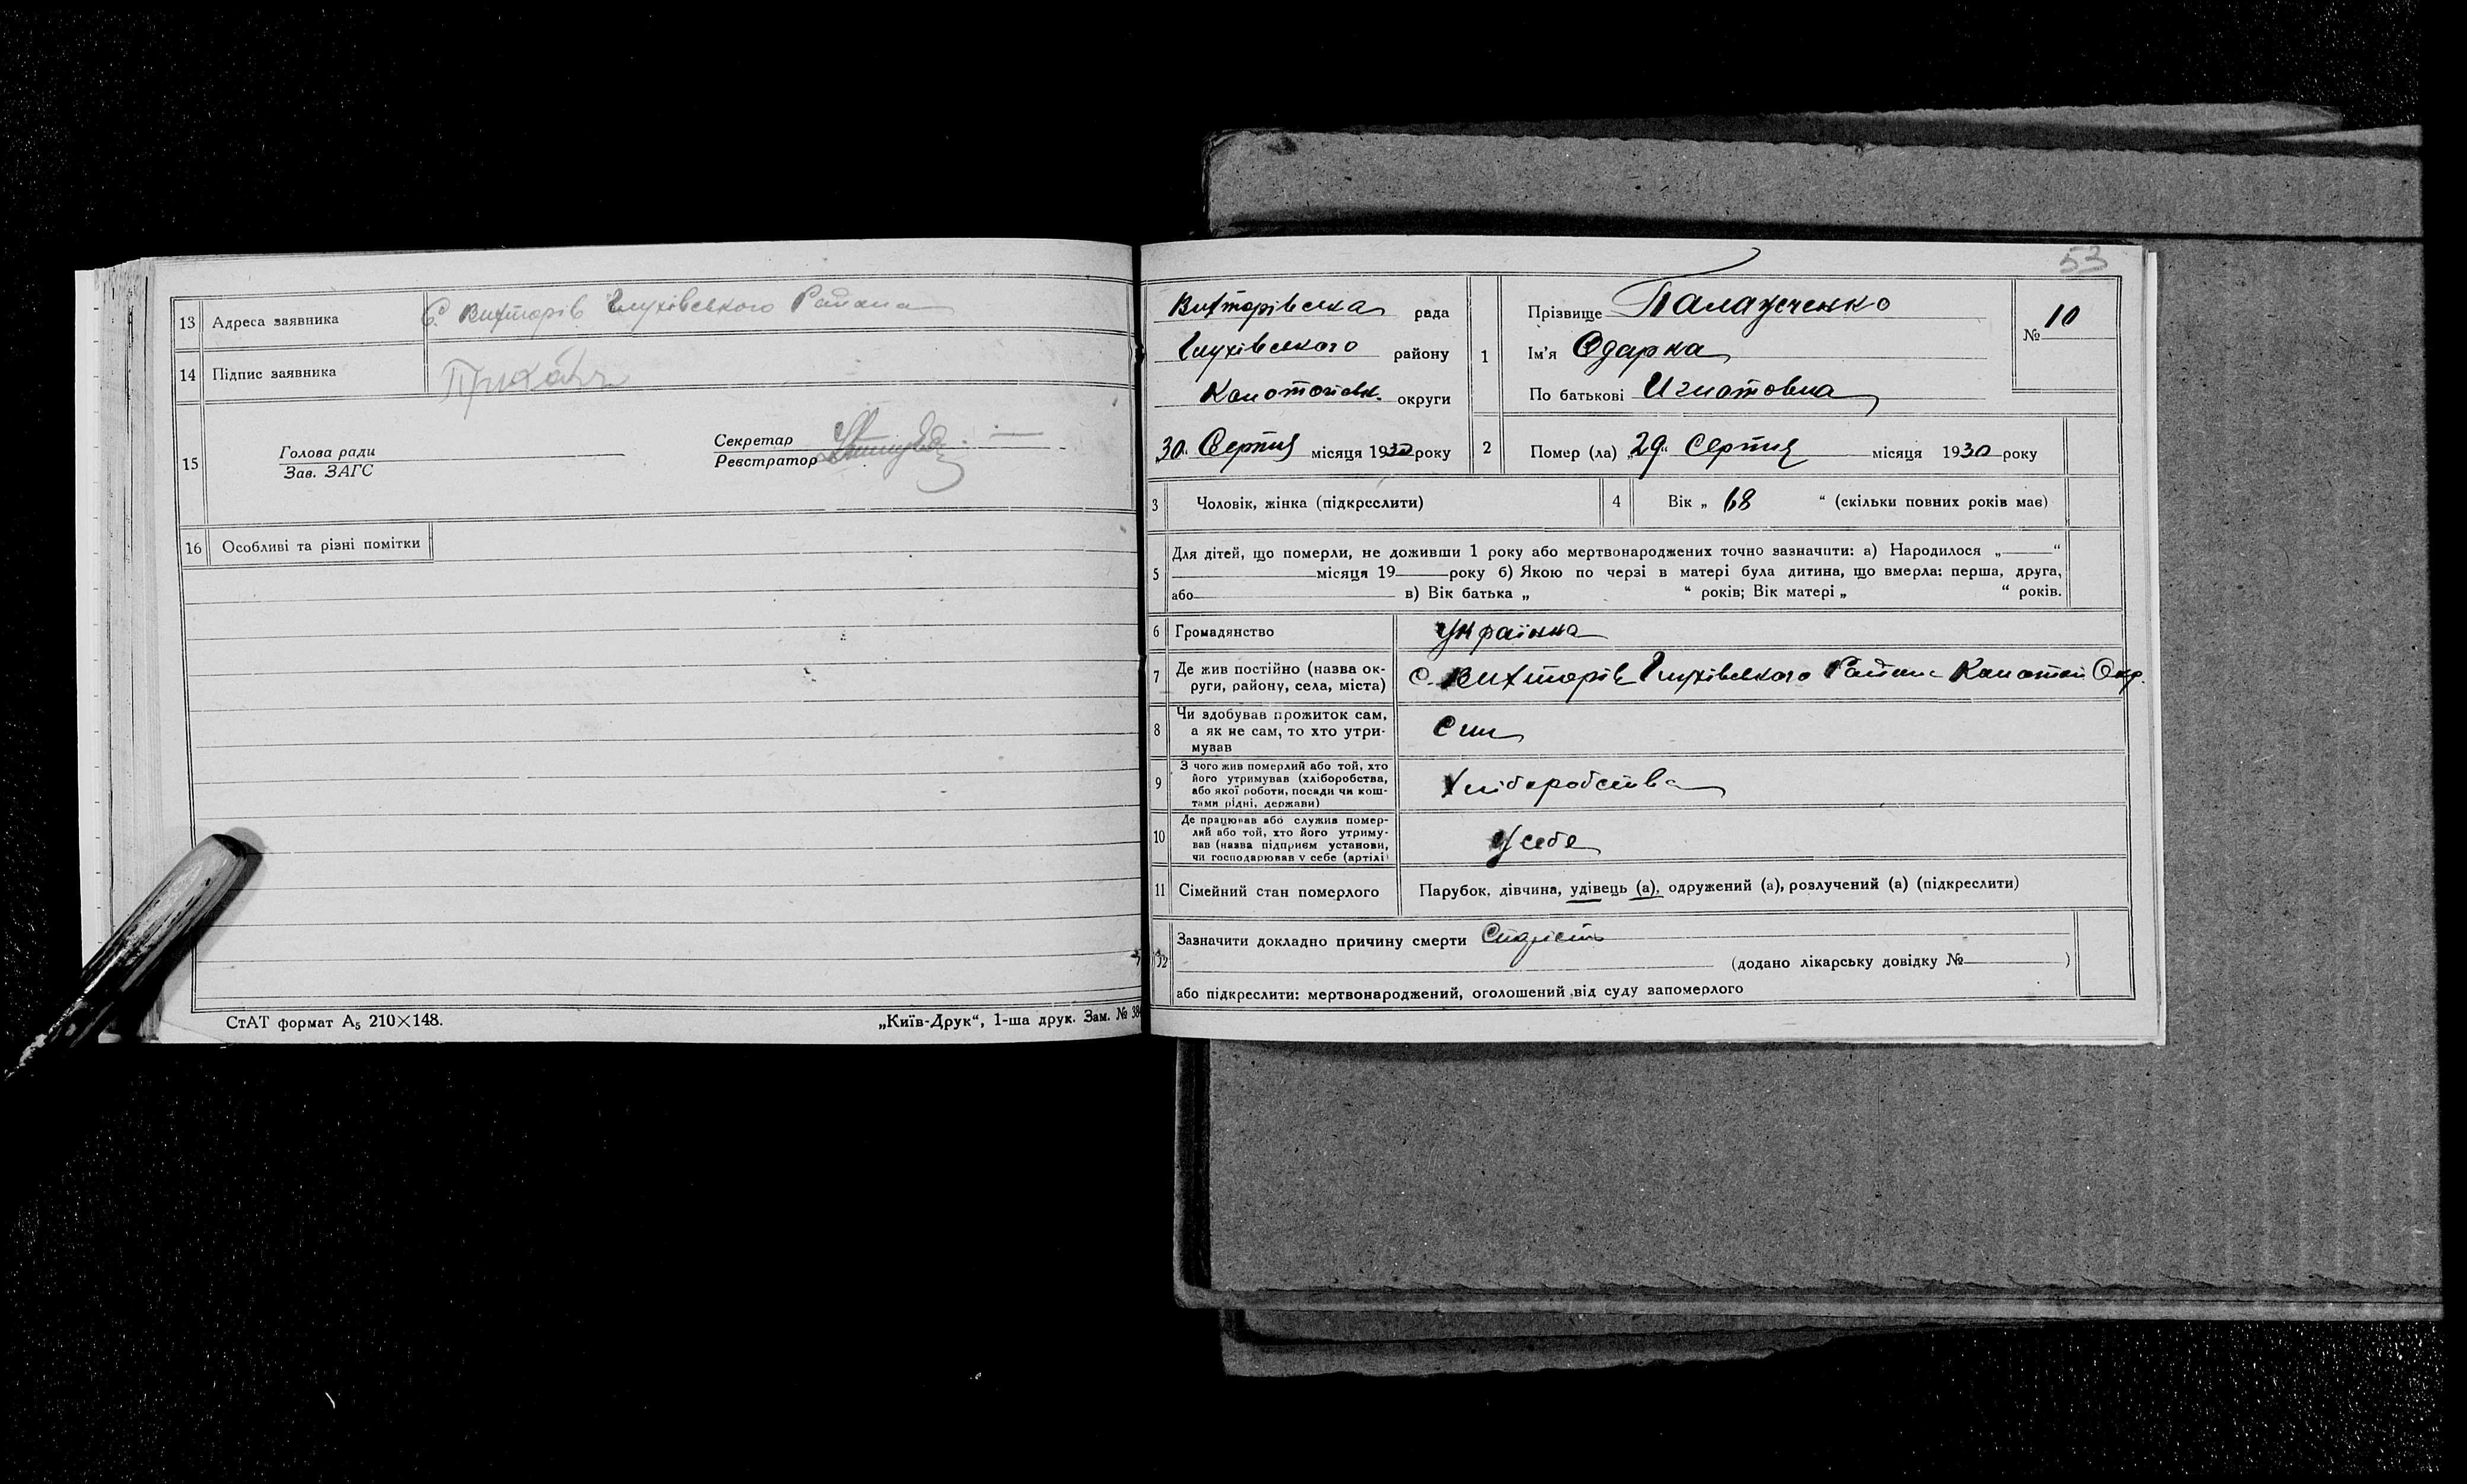 13 Адреса заявника С. Вихторів Глухівського Района
14 Підпис заявника
15 Голова ради
Зав. ЗАГС
Секретар
Реєстратор
16 Особливі та різні помітки
СтАТ формат А5 210×148.
„Київ-Друк“, 1-ша друк. Зам. № 38
53
Вихторівська рада
Глухівського району
Конотопськ. округи
„30“ Серпня місяця 1930 року
1 Прізвище
Ім'я Одарка
По батькові Игнатовна
№ 10
2 Помер (ла) „29“ Серпня місяця 1930 року
3 Чоловік, жінка (підкреслити)
4 Вік „ 68 “ (скільки повних років має)
5 Для дітей, що померли, не доживши 1 року або мертвонароджених точно зазначити: а) Народилося „ “
місяця 19 року б) Якою по черзі в матері була дитина, що вмерла: перша, друга,
або в) Вік батька „ “ років; Вік матері „ “ років.
6 Громадянство Українка
7 Де жив постійно (назва ок-
руги, району, села, міста) С. Вихторів Глухівського Района Конотоп Окр.
8 Чи здобував прожиток сам,
а як не сам, то хто утри-
мував Син
9 З чого жив померлий або той, хто
його утримував (хліборобства,
або якої роботи, посади чи кош-
тами рідні, держави) Хліборобства
10 Де працював або служив помер-
лий або той, хто його утриму-
вав (назва підприєм установи,
чи господарював у себе (артілі) У себе
11 Сімейний стан померлого Парубок, дівчина, удівець (а), одружений (а), розлучений (а) (підкреслити)
12 Зазначити докладно причину смерти Старість
(додано лікарську довідку № )
або підкреслити: мертвонароджений, оголошений від суду запомерлого